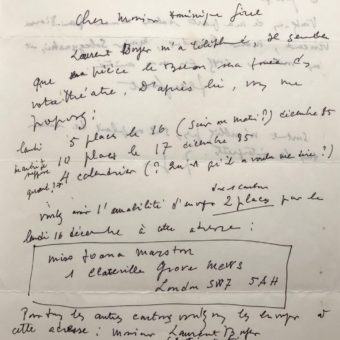 Cher Monsieur Dominique
Laurent Boyer m'a téléphoné. Il semble
que ma pièce le Baron sera jouée ds
votre théâtre. D'après lui, vous me
proposez :
lundi 5 places le 16 (soir ou matin?) décembre 85
10 places le 17 décembre 85
4 calendrier (? Qu'est qu'il a voulu me dire?)
voulez avoir l'amabilité d'envoyer 2 places pour le
lundi 16 décembre à cette adresse :
Miss Joana Marston
1 Clareville Grove Mews
London SW7 5AH
Pour les autres cartons voulez les envoyer à
cette adresse : Monsieur Laurent Boyer